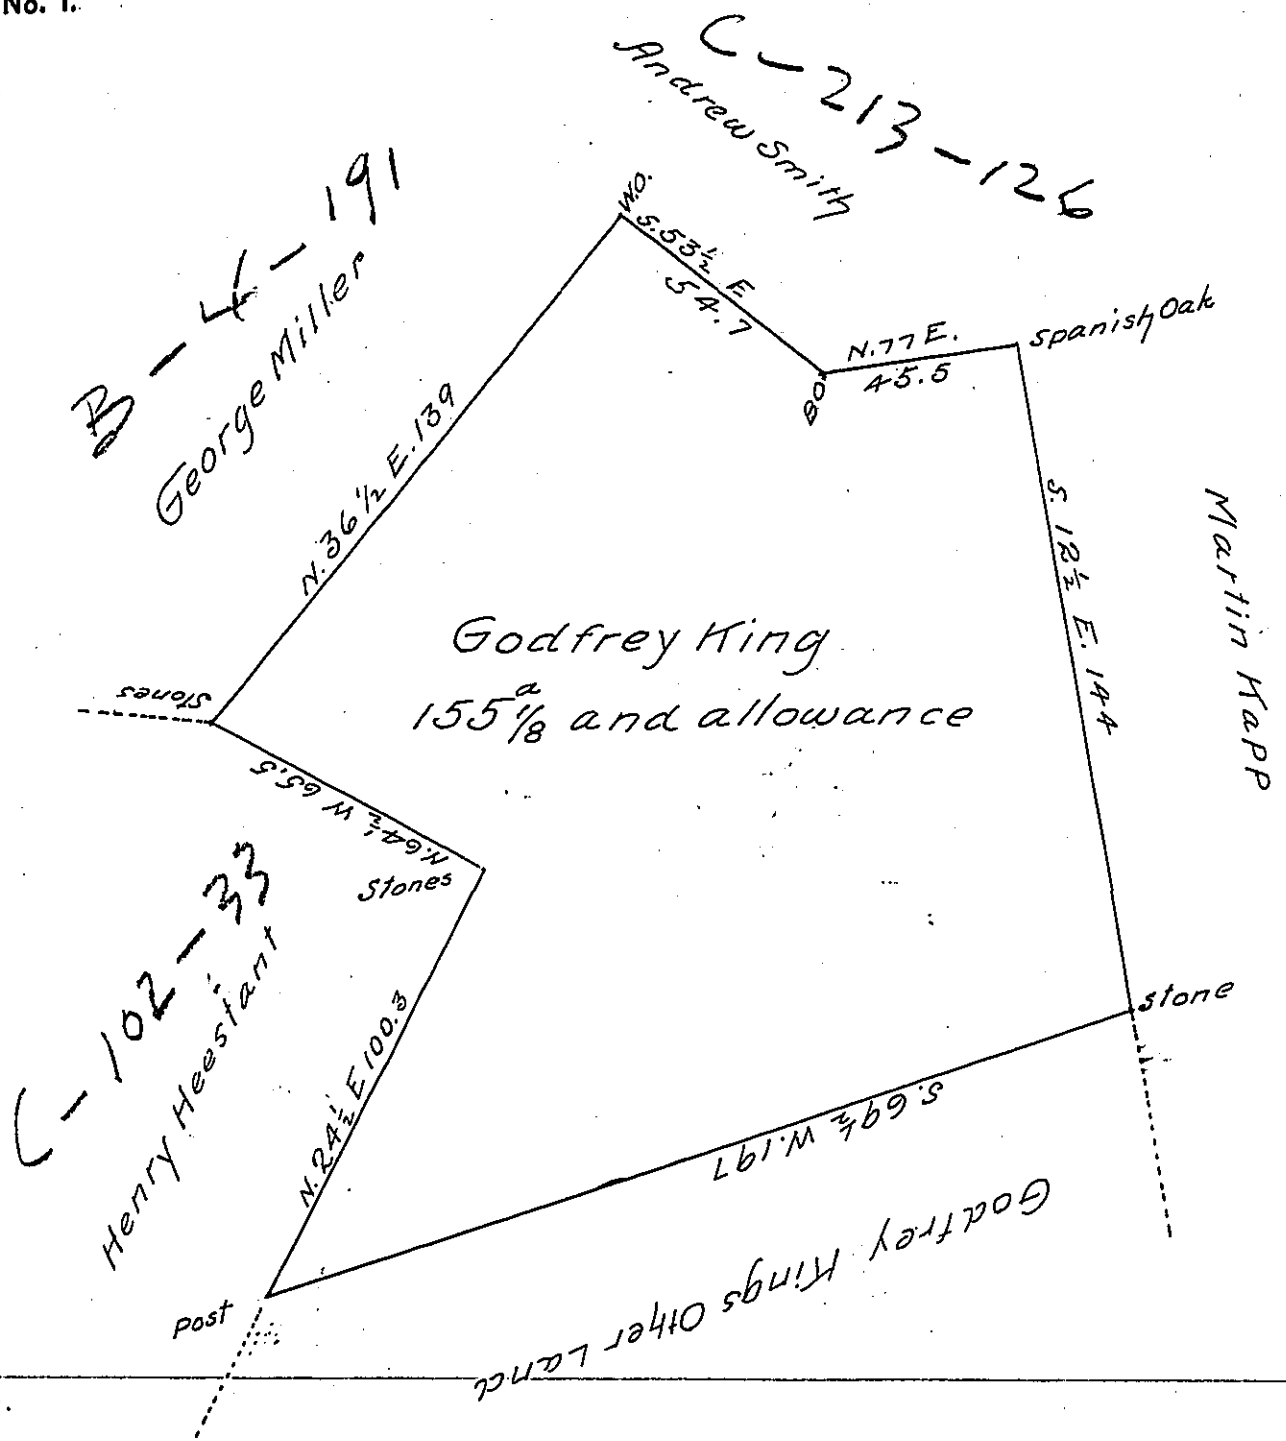 No. 1.
C-213-126
Andrew Smith
B-4-191
George Miller
W.O.
S. 53 1/2 E.
54.7
N. 77 E.
45.5
Spanish Oak
BO
N. 36 1/2 E. 139
S. 12 1/2 E. 144
Martin Kapp
Godfrey King
155 a 1/8 and allowance
Stones
N. 64 1/2 W 65.5
Stones
C-102-33
Henry Heestant
N. 24 1/2 E 100.3
stone
S. 69 1/2 W. 197
Godfrey Kings Other Land
Post